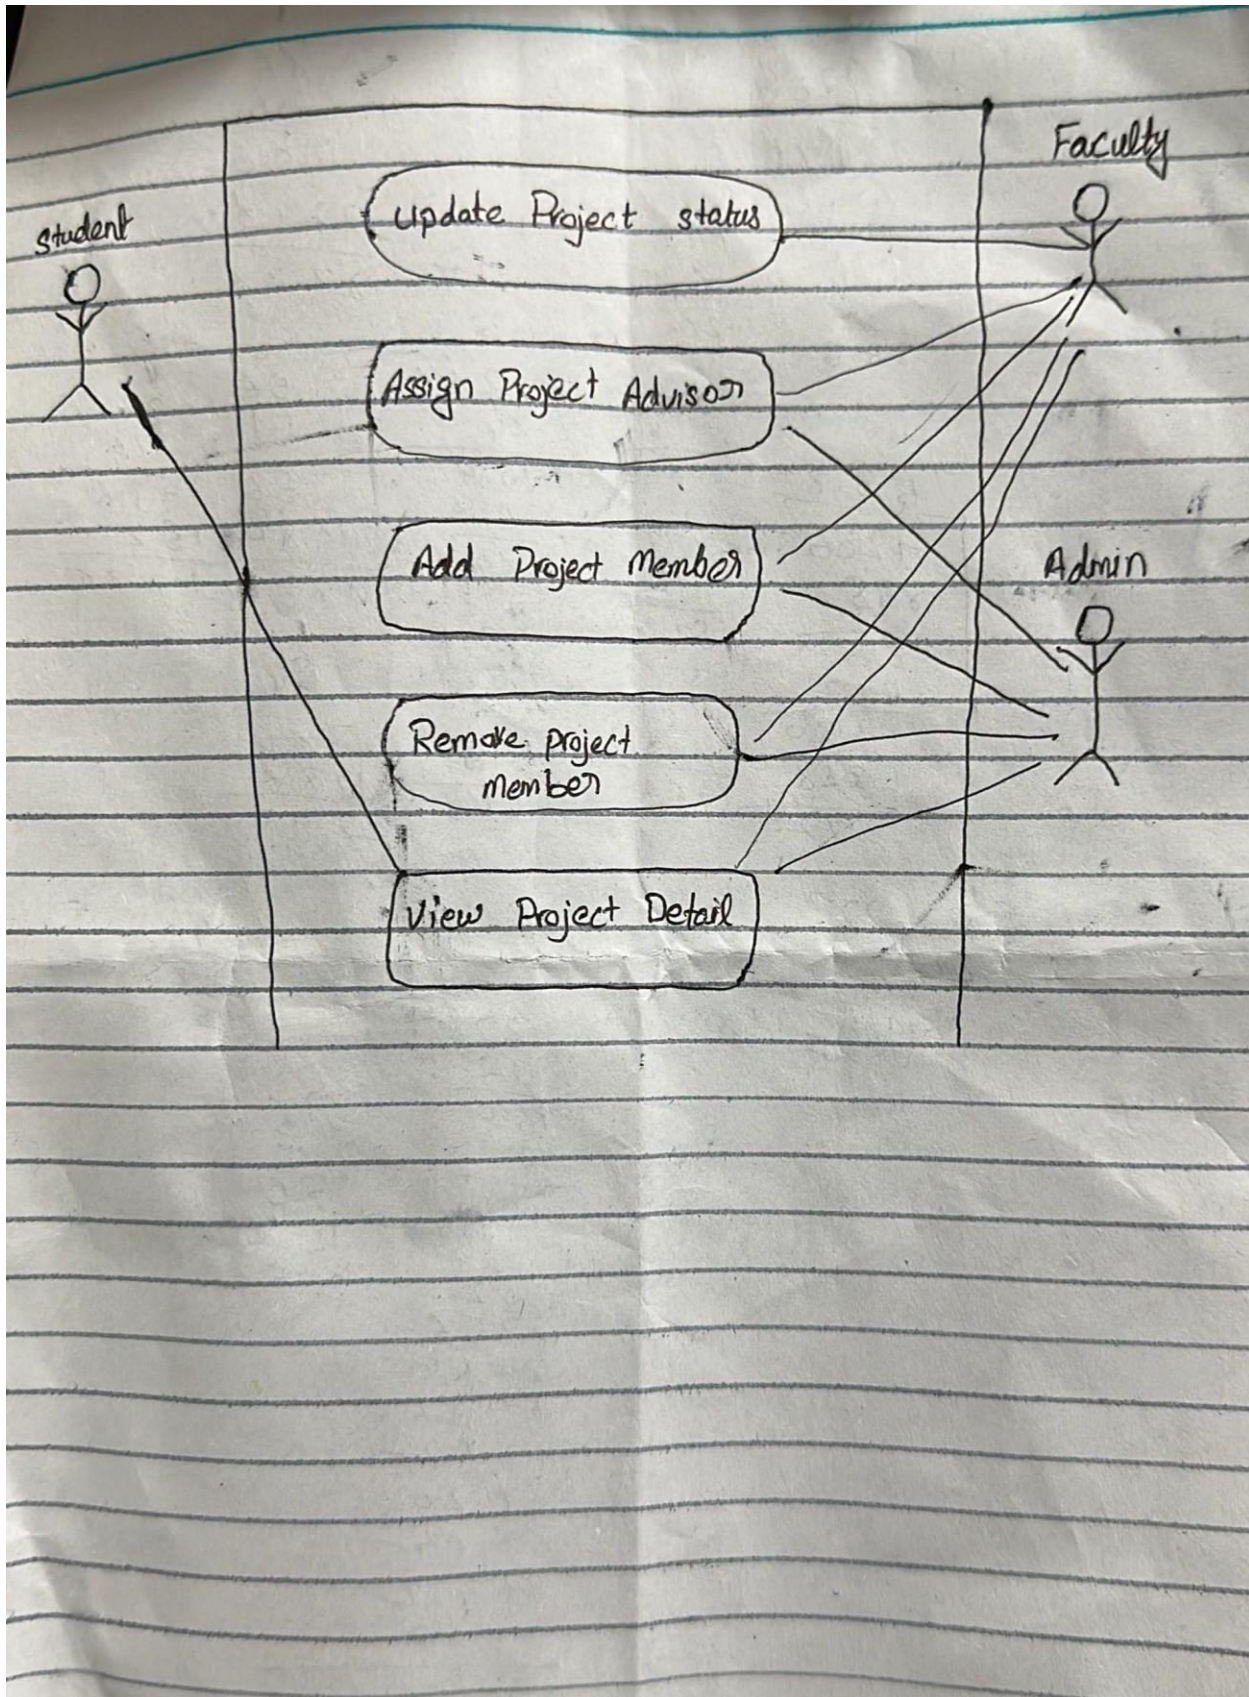 Faculty
Student
update Project status
Assign Project Advisor
Add Project Member
Admin
Remove project
member
View Project Detail